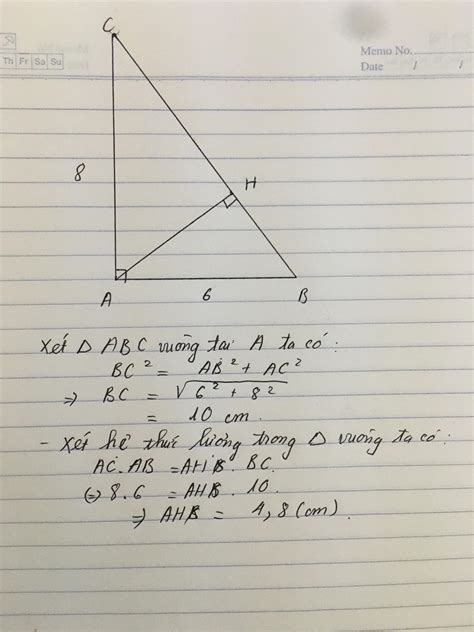 Memo No.
Date / /
Th Fr Sa Su
C
8
H
A
6
B
Xét Δ ABC vuông tại A ta có :
BC² = AB² + AC²
=> BC = √6² + 8²
= 10 cm.
- Xét hệ thức lượng trong Δ vuông ta có :
AC.AB = AH.BC.
(=) 8.6 = AH.10
=> AH = 4,8 (cm).